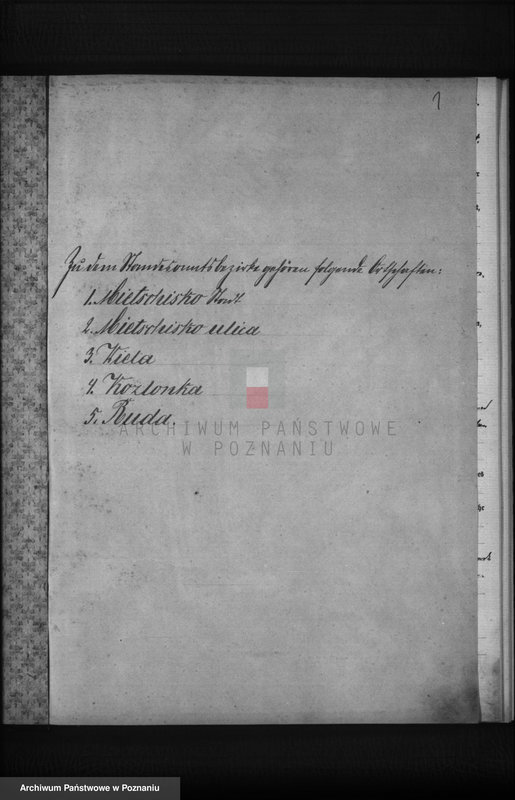 1
Zu dem Standesamtsbezirke gehören folgende Ortschaften:
1. Mietschisko Stadt
2. Mietschisko ulica
3. Kiela
4. Kozlonka
5. Ruda.
ARCHIWUM PAŃSTWOWE
W POZNANIU
Archiwum Państwowe w Poznaniu